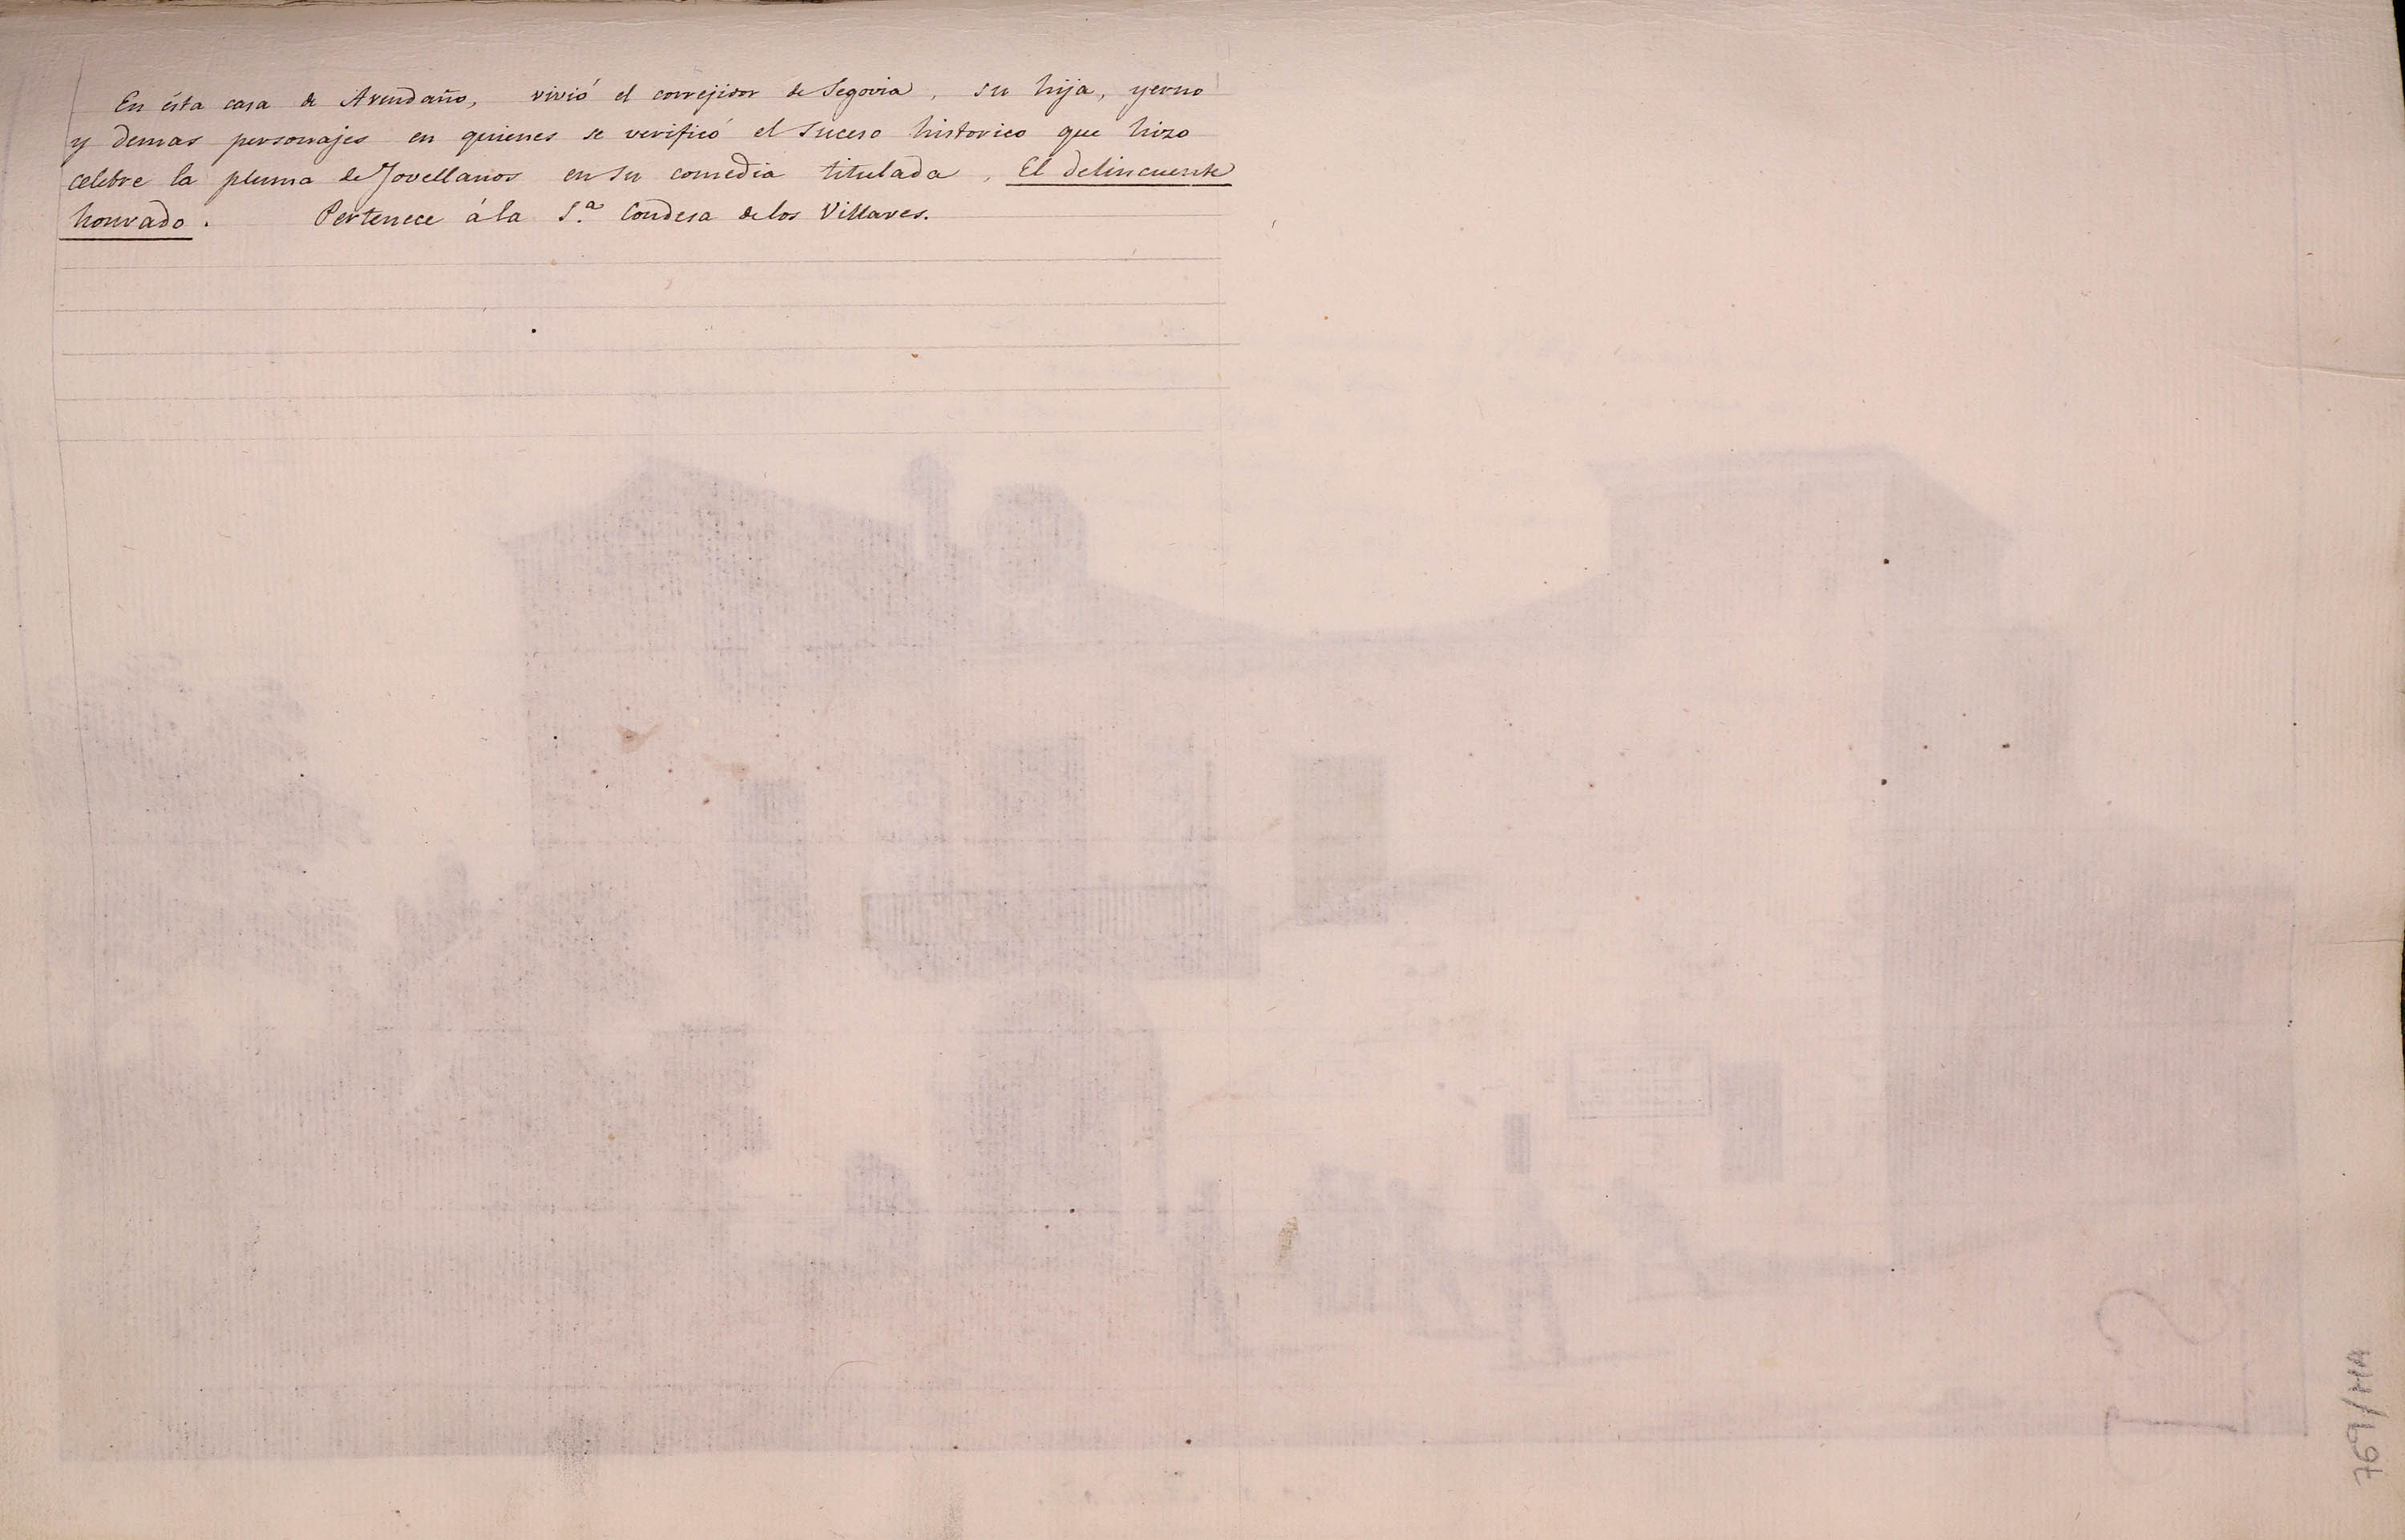 En ésta casa de Avendaño, vivió el correjidor de Segovia, su hija, yerno
y demas personajes en quienes se verificó el suceso historico que hizo
celebre la pluma de Jovellanos en su comedia titulada, El delincuente
honrado. Pertenece á la S.ª Condesa de los Villares.